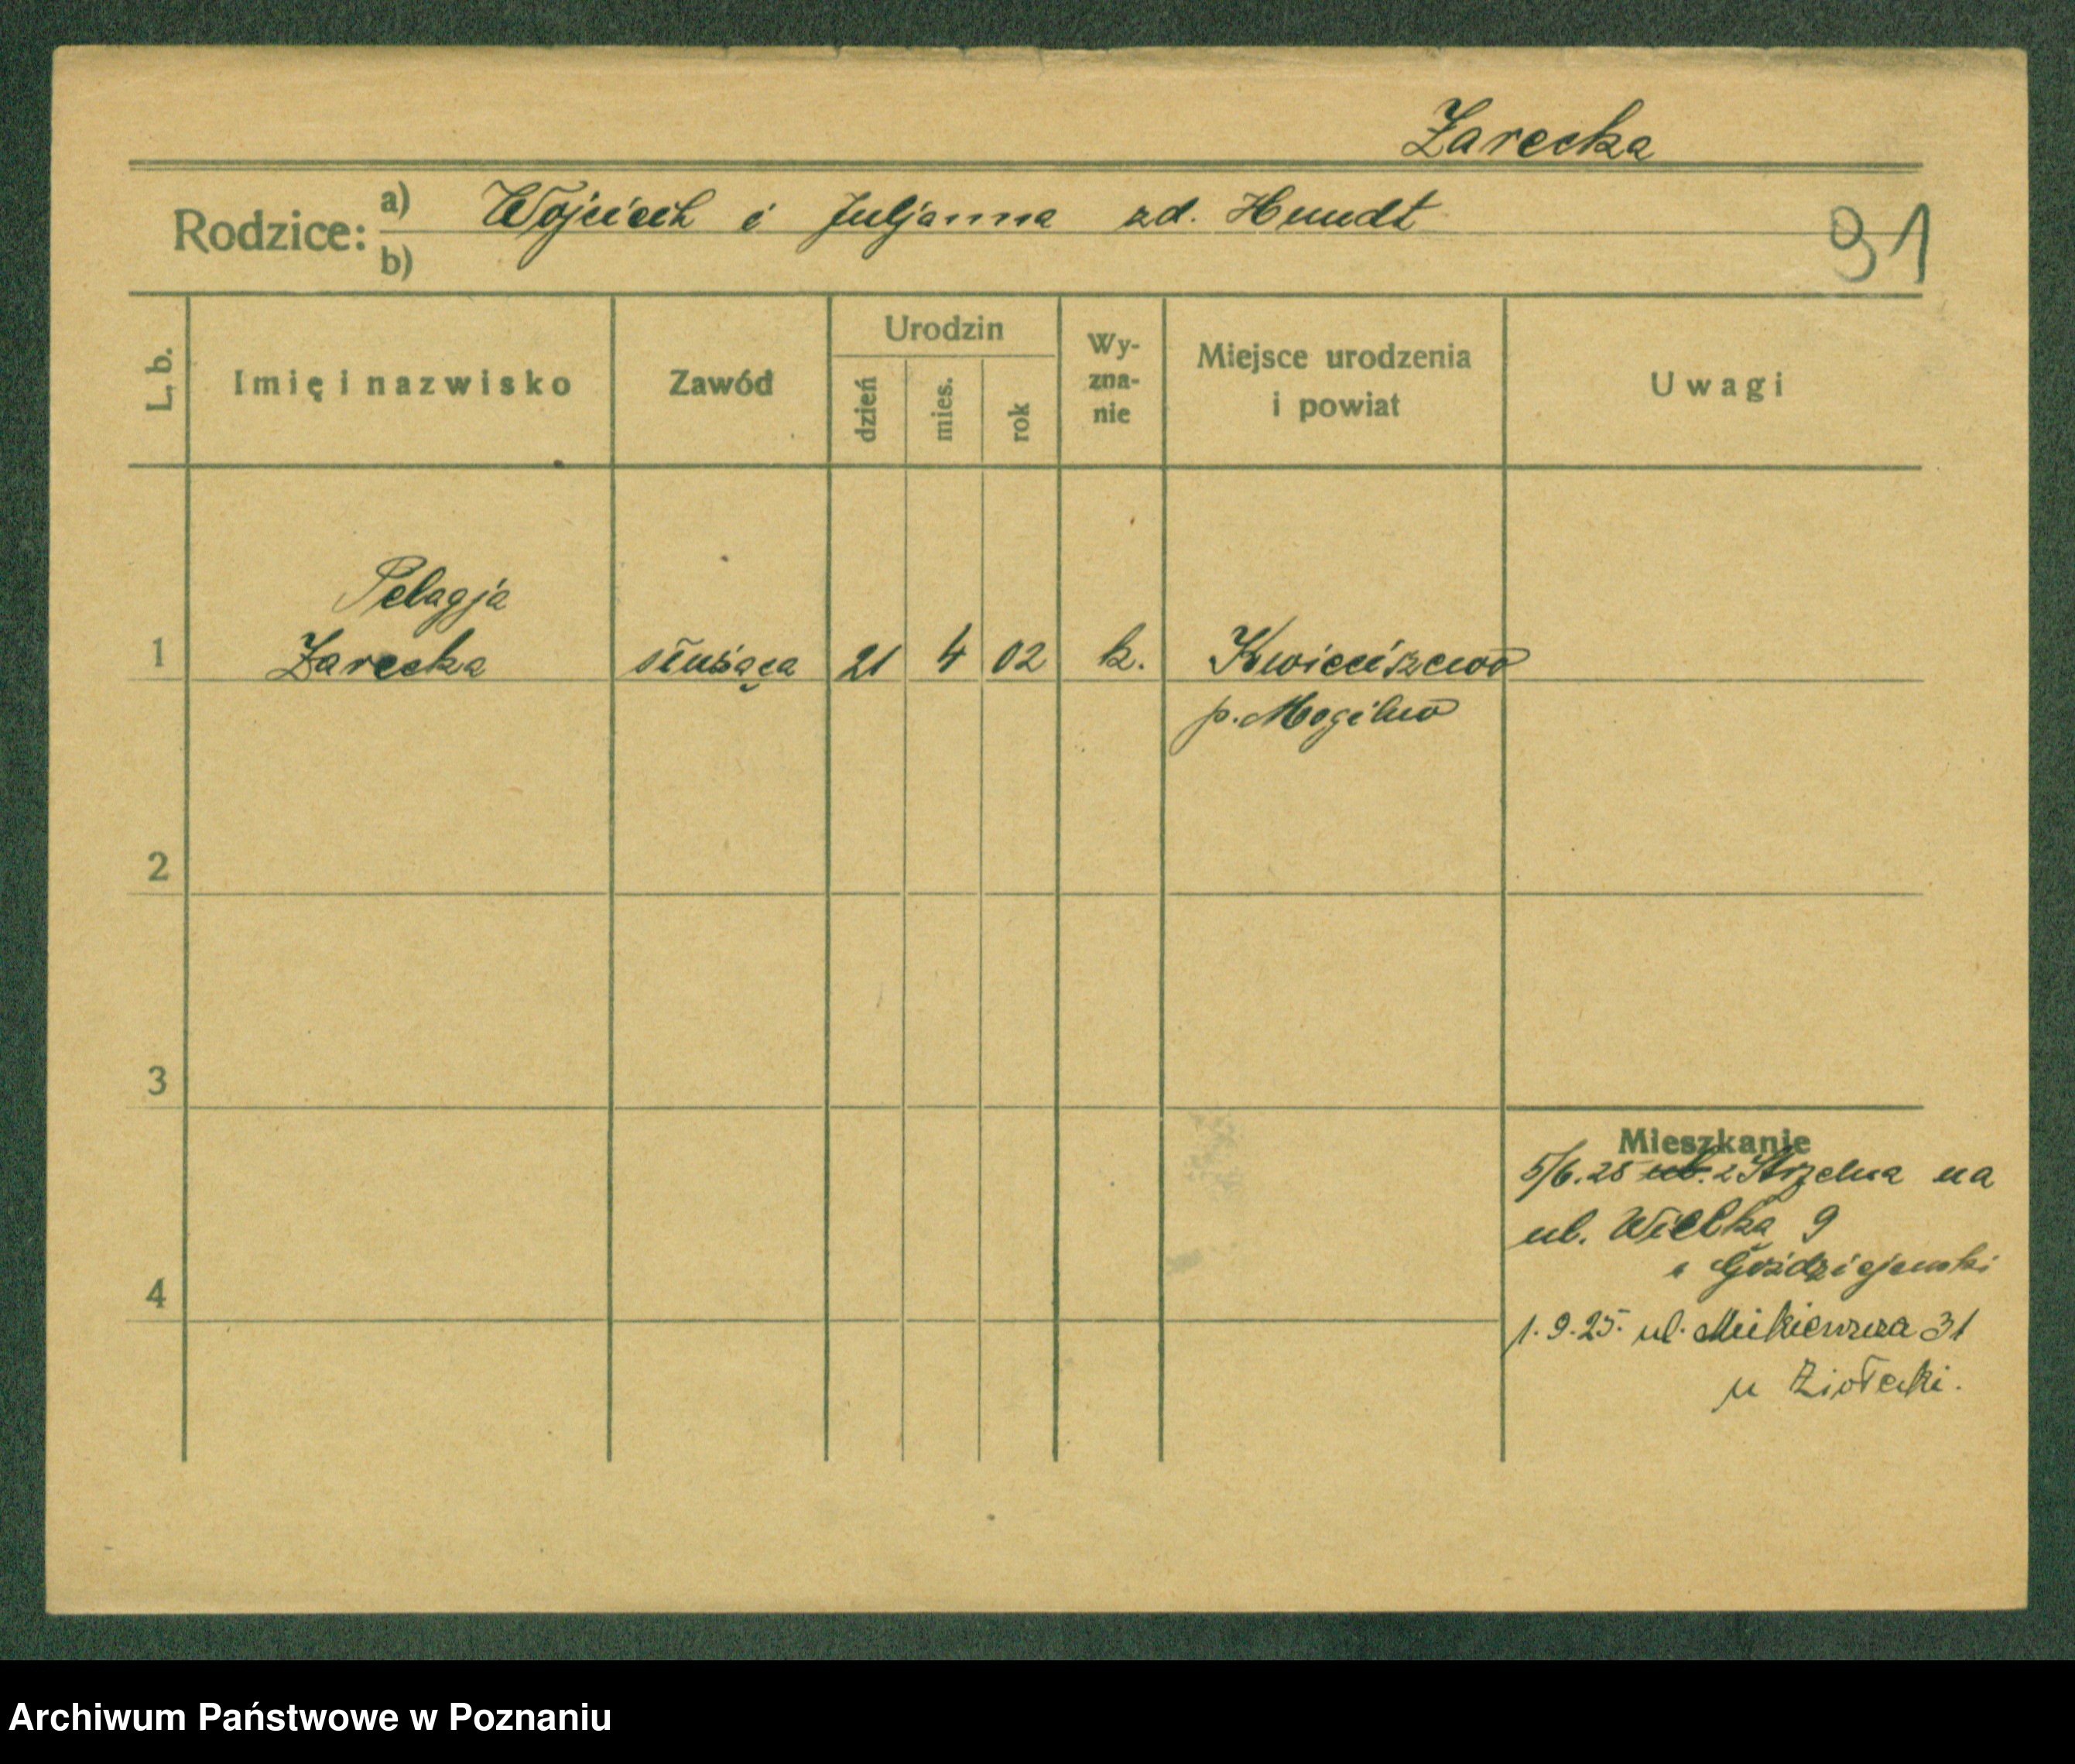 Zarecka
Rodzice: a) Wojciech i Juljanna zd. Hundt
b)
91
L. b.
Imię i nazwisko
Zawód
Urodzin
dzień
mies.
rok
Wy-
zna-
nie
Miejsce urodzenia
i powiat
Uwagi
Pelagja
1 Zarecka służąca 21 4 02 k. Kwieciszewo
p. Mogilno
2
3
4
Mieszkanie
5/6.25 ul. z Strzelna na
ul. Wielka 9
Goździejewski
1.9.25. ul. Mickiewicza 31
u Ziołecki.
Archiwum Państwowe w Poznaniu